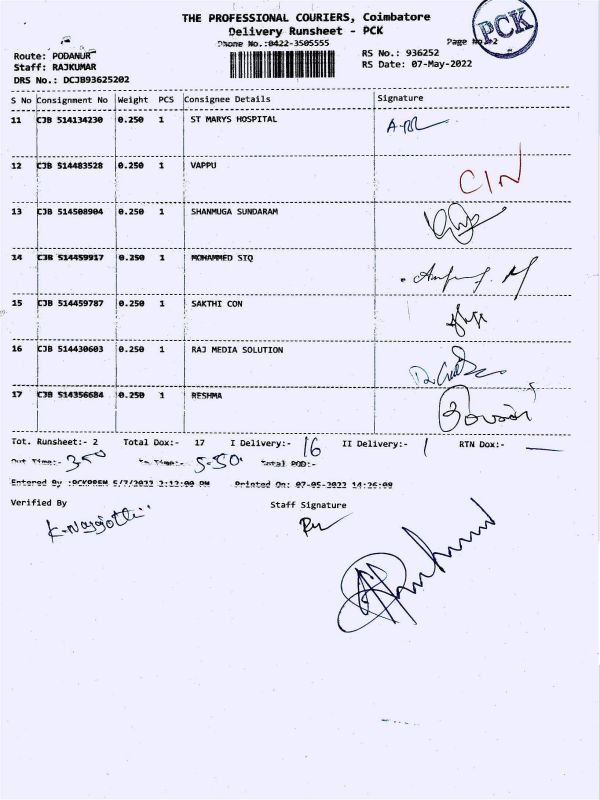 THE PROFESSIONAL COURIERS, Coimbatore
Delivery Runsheet - PCK
PCK
Phone No.:0422-3505555
Page No.:2
Route: PODANUR
RS No.: 936252
Staff: RAJKUMAR
RS Date: 07-May-2022
DRS No.: DCJB93625202
S No Consignment No Weight PCS Consignee Details Signature
11 CJB 514134230 0.250 1 ST MARYS HOSPITAL
12 CJB 514483528 0.250 1 VAPPU CIN
13 CJB 514508904 0.250 1 SHANMUGA SUNDARAM
14 CJB 514459917 0.250 1 MOHAMMED SIQ
15 CJB 514459787 0.250 1 SAKTHI CON
16 CJB 514430603 0.250 1 RAJ MEDIA SOLUTION
17 CJB 514356684 0.250 1 RESHMA
Tot. Runsheet:- 2 Total Dox:- 17 I Delivery:- 16 II Delivery:- 1 RTN Dox:- —
Out Time:- 3.50 In Time:- 5.50 Total POD:-
Entered By :PCKPREM 5/7/2022 2:12:00 PM Printed On: 07-05-2022 14:26:08
Verified By Staff Signature